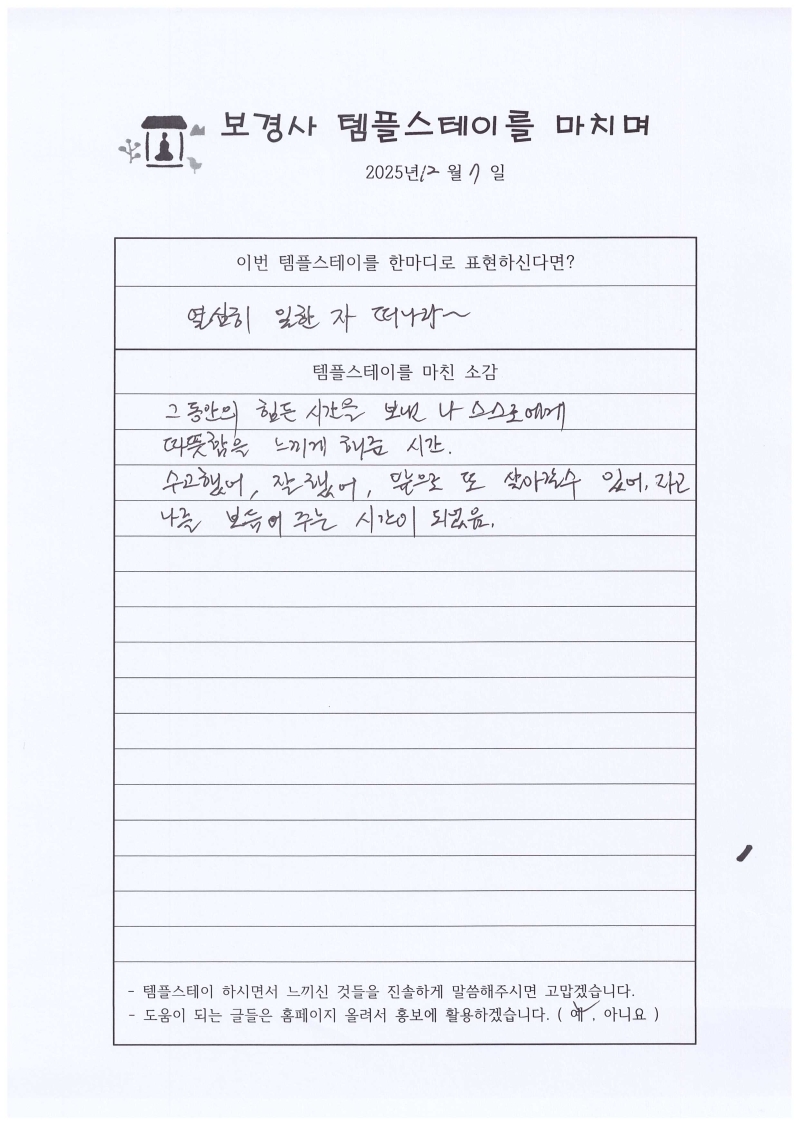 보경사 템플스테이를 마치며
2025년 12월 7일
이번 템플스테이를 한마디로 표현하신다면?
열심히 일한 자 떠나라~
템플스테이를 마친 소감
그동안의 힘든 시간을 보낸 나 스스로에게
따뜻함을 느끼게 해준 시간.
수고했어, 잘했어, 앞으로 또 살아갈수 있어. 라고
나를 보듬어 주는 시간이 되었음.
- 템플스테이 하시면서 느끼신 것들을 진솔하게 말씀해주시면 고맙겠습니다.
- 도움이 되는 글들은 홈페이지 올려서 홍보에 활용하겠습니다. ( 예 , 아니요 )